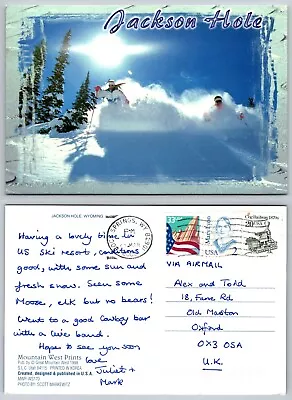 Jackson Hole
JACKSON HOLE, WYOMING
Having a lovely time in
US Ski resort, conditions
good, with some sun and
fresh snow. Seen some
Moose, elk but no bears!
Went to a good Cowboy bar
with a live band.
Hope to see you soon
love
Juliet +
Mark
Mountain West Prints
S.L.C. Utah 84115 PRINTED IN KOREA
Created, designed & published in U.S.A.
PHOTO BY SCOTT MARKEWITZ
USA
2
20 USA
VIA AIRMAIL
Alex and Todd
18, Fane Rd
Old Marston
Oxford
OX3 OSA
U.K.